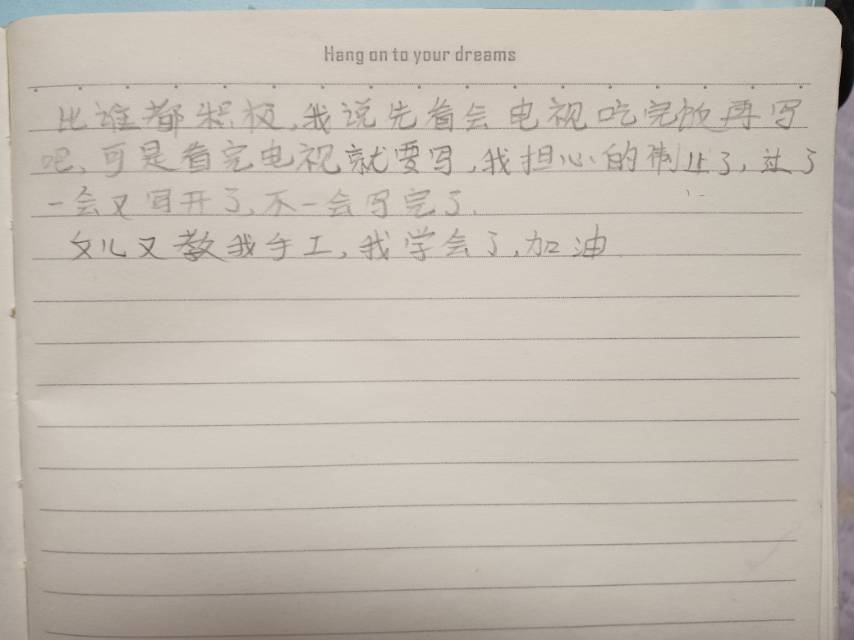 Hang on to your dreams
比谁都积极,我说先看会电视吃完饭再写
吧,可是看完电视就要写,我担心的制止了,过了
一会又写开了,不一会写完了.
女儿又教我手工,我学会了,加油